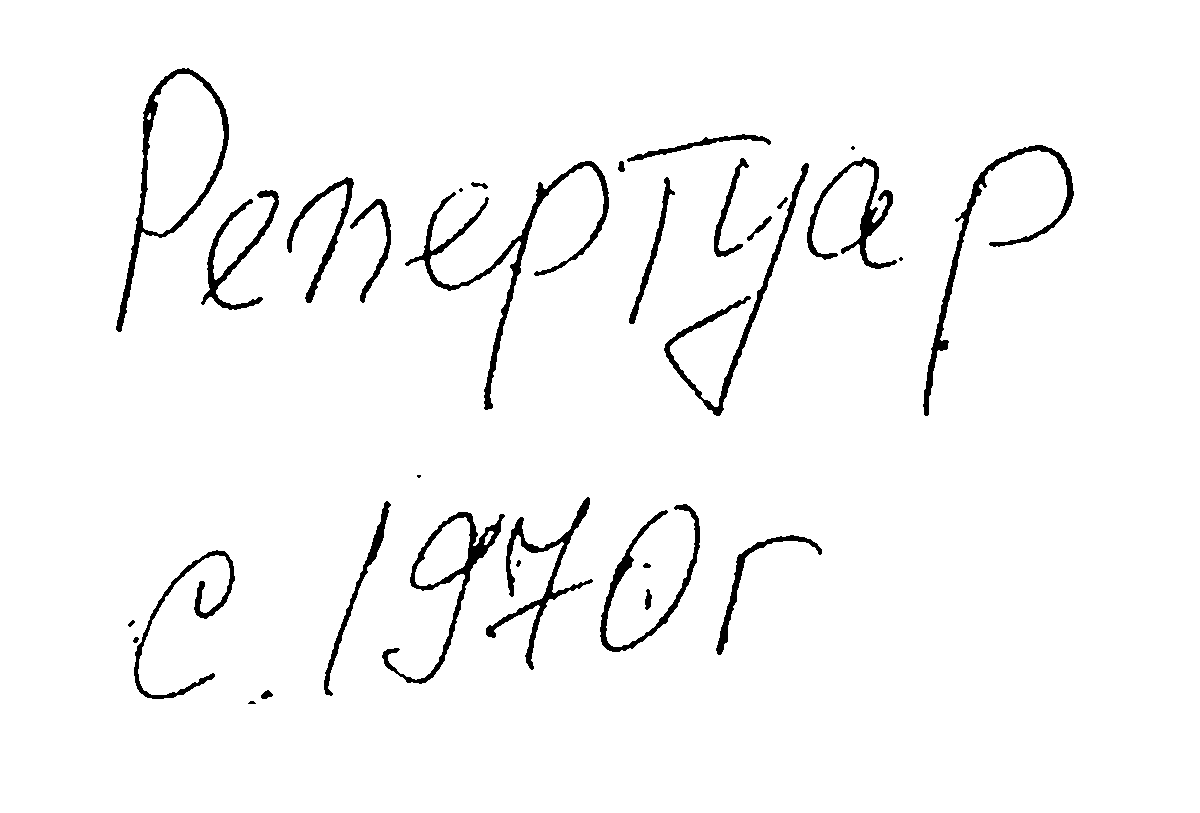 Репертуар
с. 1970г